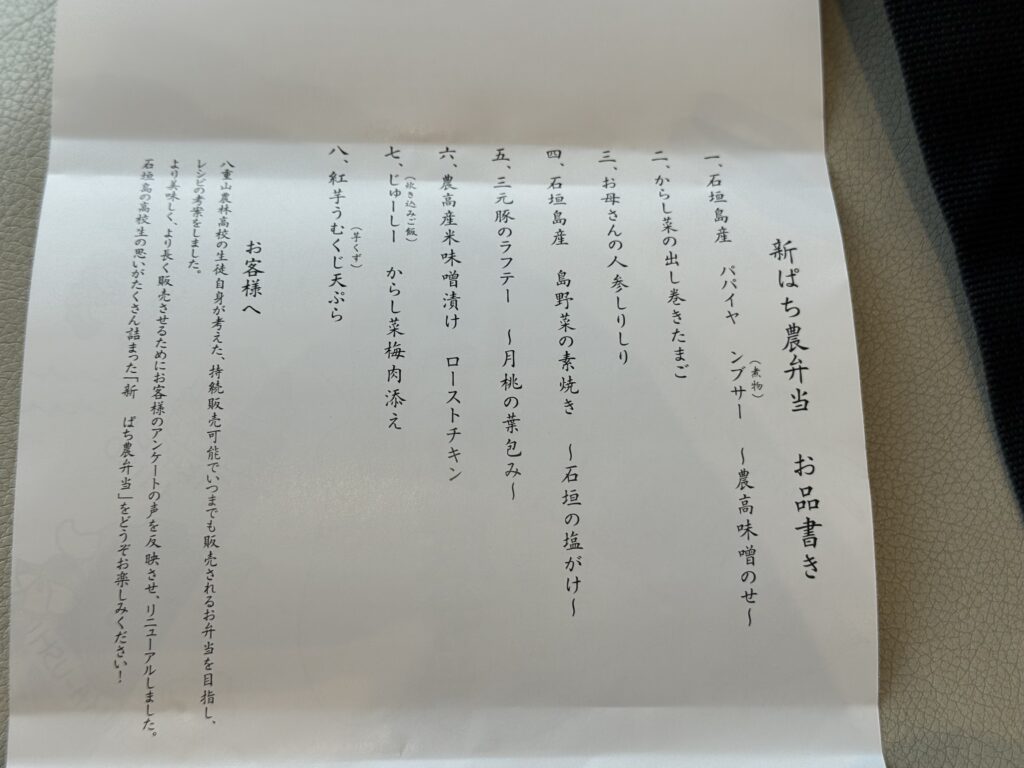 新ぱち農弁当　お品書き
一、石垣島産　パパイヤ　ンブサー（煮物）　～農高味噌のせ～
二、からし菜の出し巻きたまご
三、お母さんの人参しりしり
四、石垣島産　島野菜の素焼き　～石垣の塩がけ～
五、三元豚のラフテー　～月桃の葉包み～
六、農高産米味噌漬け　ローストチキン
七、じゅーしー（炊き込みご飯）　からし菜梅肉添え
八、紅芋うむくじ（芋くず）天ぷら
お客様へ
八重山農林高校の生徒自身が考えた、持続販売可能でいつまでも販売されるお弁当を目指し、
レシピの考案をしました。
より美味しく、より長く販売させるためにお客様のアンケートの声を反映させ、リニューアルしました。
石垣島の高校生の思いがたくさん詰まった「新　ぱち農弁当」をどうぞお楽しみください！